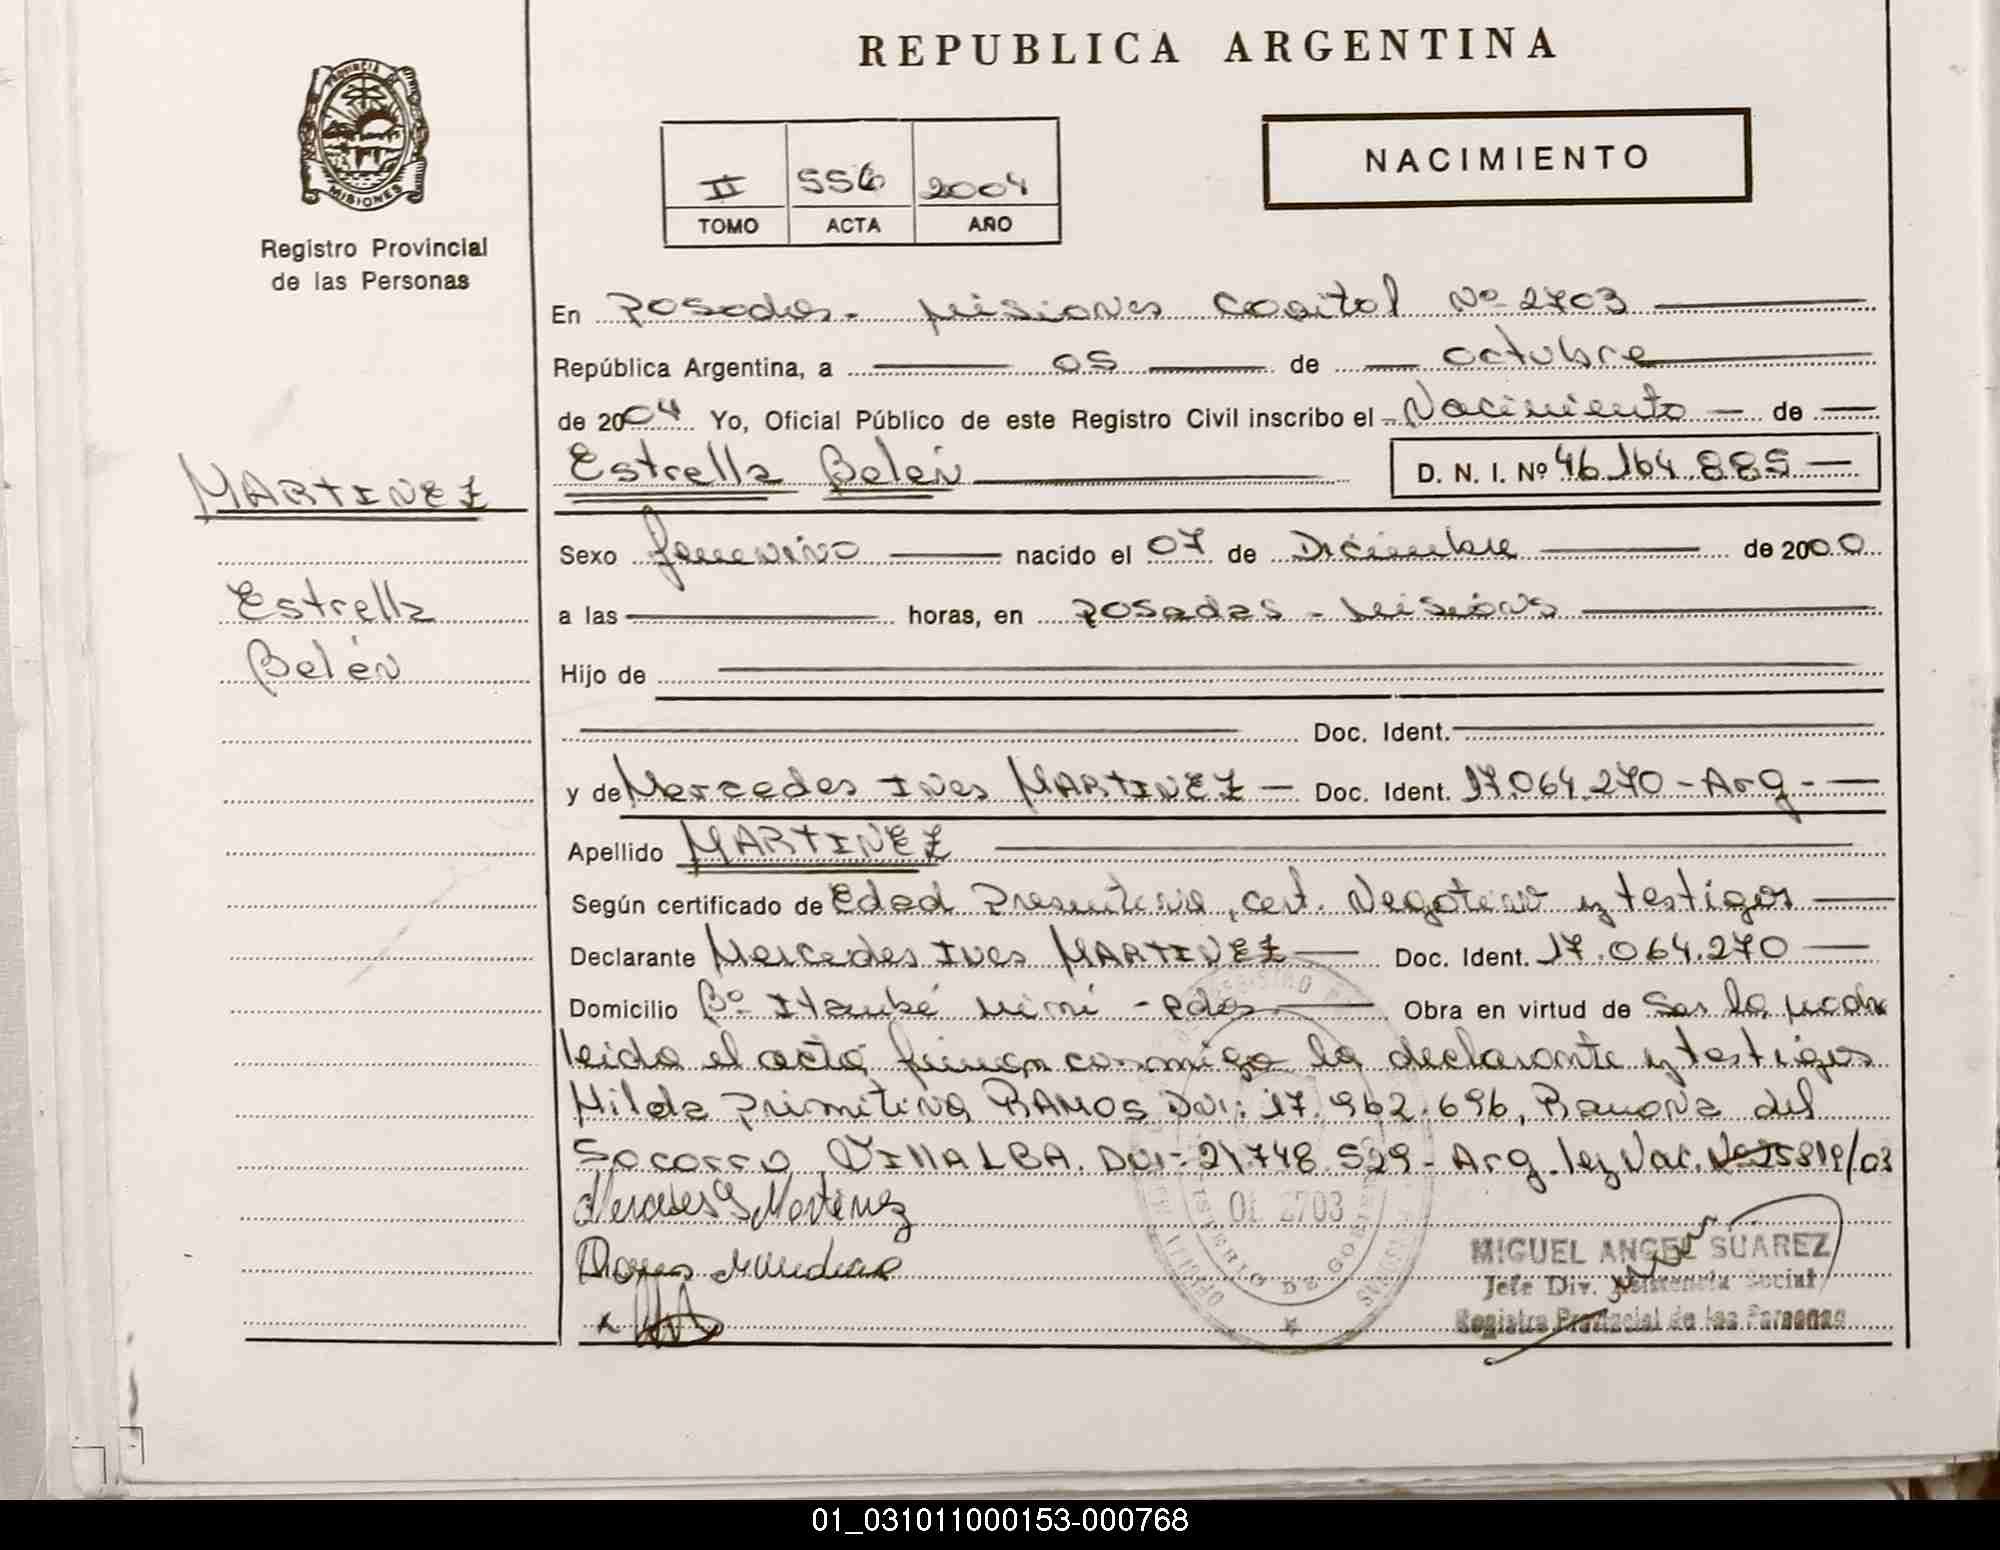 REPUBLICA ARGENTINA
PROVINCIA DE
MISIONES
Registro Provincial
de las Personas
II 556 2004
TOMO ACTA AÑO
NACIMIENTO
En Posadas - Misiones Capital Nº 2703
República Argentina, a 05 de octubre
de 2004 Yo, Oficial Público de este Registro Civil inscribo el Nacimiento de
Estrella Belén D. N. I. Nº 46.164.885
MARTINEZ
Estrella
Belén
Sexo femenino nacido el 07 de Diciembre de 2000
a las horas, en Posadas - Misiones
Hijo de
Doc. Ident.
y de Mercedes Ines MARTINEZ Doc. Ident. 17.064.270 - Arg -
Apellido MARTINEZ
Según certificado de Edad Presuntiva, cert. Negativo y testigos
Declarante Mercedes Ines MARTINEZ Doc. Ident. 17.064.270
Domicilio Bº Itaembé mini - Pdas Obra en virtud de Ser la madre
leida el acta firman conmigo la declarante y testigos
Hilda Primitiva RAMOS DNI: 17.962.696, Ramona del
Socorro VILLALBA. DNI: 21.748.529 - Arg. ley Nac. Nº 25819/03
Mercedes I Martinez
OF. 2703
MINISTERIO DE GOBIERNO
MIGUEL ANGEL SUAREZ
Jefe Div. Asistencia Social
Registro Provincial de las Personas
01_031011000153-000768